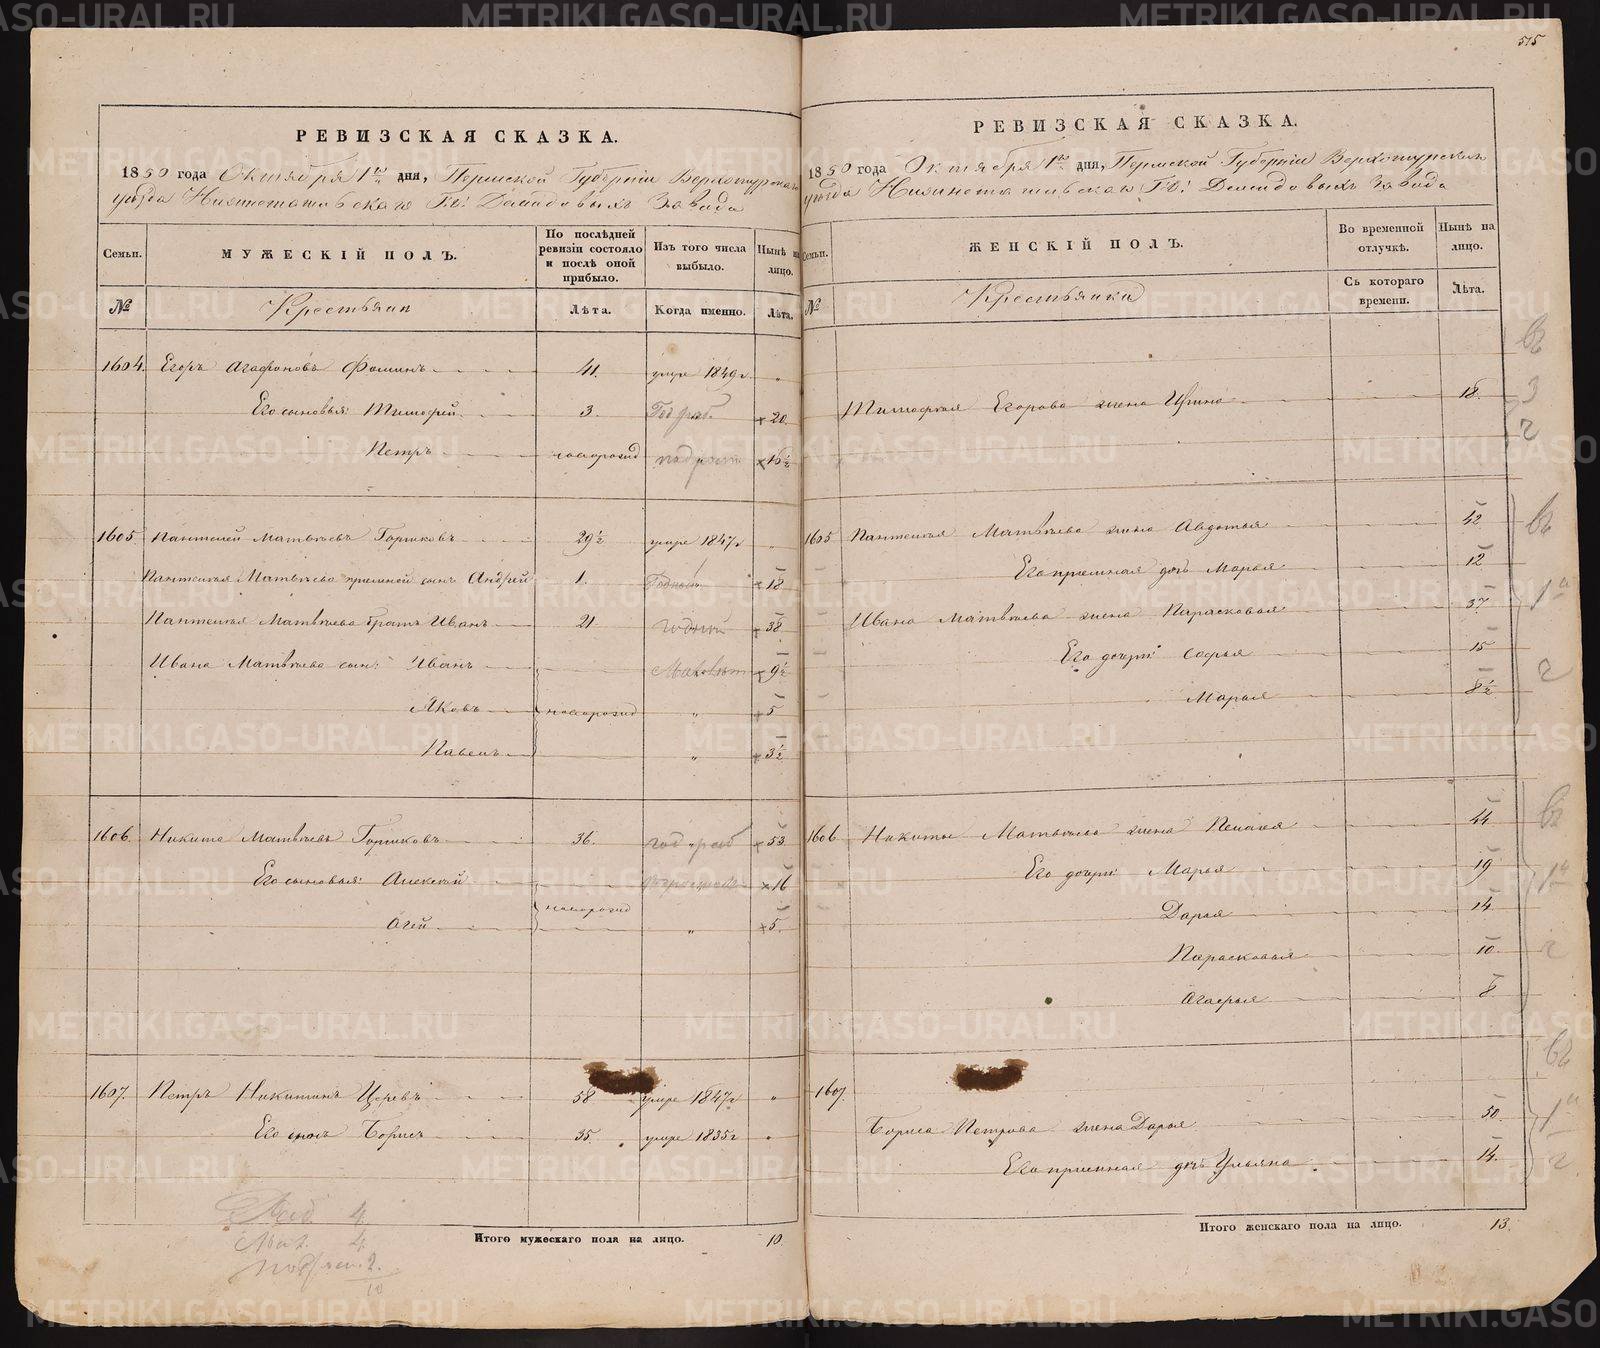 515
РЕВИЗСКАЯ СКАЗКА.
1850 года Октября 1го дня, Пермской Губернии Верхотурскаго
уѣзда Нижнетагильскаго Г.д. Демидовыхъ Завода
Семьи.
МУЖЕСКІЙ ПОЛЪ.
По послѣдней ревизіи состояло и послѣ оной прибыло.
Изъ того числа выбыло.
Нынѣ на лицо.
№
Крестьяне
Лѣта.
Когда именно.
Лѣта.
1604. Егоръ Агафоновъ Фоминъ 41. умре 1849г „
Его сыновья: Тимофей 3. Год раб 20
Петръ новорожд подрост 16½
1605 Пантелей Матвѣевъ Горшковъ 29½ умре 1847г „
Пантелея Матвѣева приемной сынъ Андрей 1. Годный 18
Пантелея Матвѣева братъ Иванъ 21 годный 38
Ивана Матвѣева сын: Иванъ Малолѣт 9½
Яковъ новорожд „ 5
Павелъ „ 3½
1606. Никита Матвѣевъ Горшковъ 36. год раб 53
Его сыновья: Алексей подросток 16
новорожд
Агей „ 5.
1607. Петръ Никитинъ 58 умре 1847г „
Его сынъ Борисъ 35. умре 1835г „
Итого мужескаго пола на лицо. 10.
Раб 4
Мал. 4
подрос. 2.
10
РЕВИЗСКАЯ СКАЗКА.
1850 года Октября 1го дня, Пермской Губерніи Верхотурскаго
уѣзда Нижнетагильскаго Г.д. Демидовыхъ Завода
Семьи.
ЖЕНСКІЙ ПОЛЪ.
Во временной отлучкѣ.
Нынѣ на лицо.
№
Крестьянки
Съ котораго времени.
Лѣта.
Тимофея Егорова жена Ирина 18.
1605 Пантелея Матвѣева жена Авдотья 42
Его приемная дочь Марья 12
Ивана Матвѣева жена Парасковья 37
Его дочери: Софья 15
Марья 8½
1606 Никиты Матвѣева жена Пелагея 44
Его дочери: Марья 19
Дарья 14
Парасковья 10
Агафья 8
1607.
Бориса Петрова жена Дарья 50.
Его приемная дочь Ульяна 14.
Итого женскаго пола на лицо. 13.
METRIKI.GASO-URAL.RU